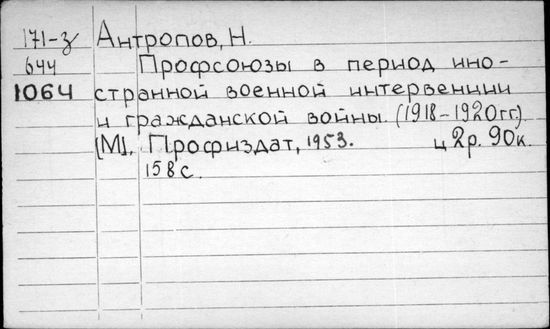 171-з Антропов, Н.
644 Профсоюзы в период ино-
1064 странной военной интервенции
и гражданской войны. (1918-1920гг.)
[М]. Профиздат, 1953. ц 2р. 90к.
158с.